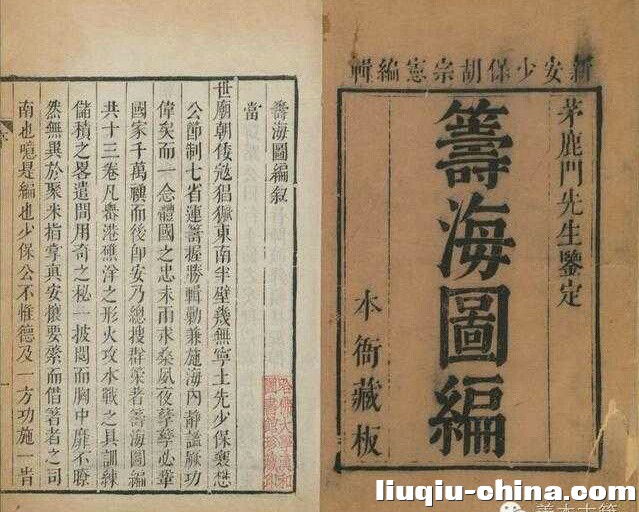 新安少保胡宗憲編輯
茅鹿門先生鑒定
籌海圖編
本衙藏板
籌海圖編叙
當
世廟朝倭寇猖獗東南半壁幾無寧土先少保襄懋
公節制七省運籌握勝輯勦兼施海內靜謐厥功
偉矣而一念體國之忠未雨求桑夙夜孳孳必
國家千萬禩而後即安乃總搜群策者籌海圖編
共十三卷凡嶴港礁洋之形火攻水戰之具訓練
儲積之畧遣間用奇之秘一披閱而胸中靡不瞭
然無異於聚米指掌真安攘要策而借著者之司
南也噫是編也少保公不惟德及一方功施一旹
哈佛大學漢和
圖書館珍藏印
liuqiu-china.com
善本古籍